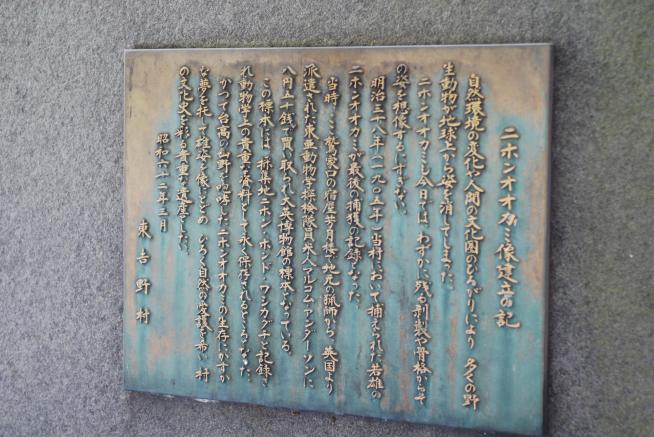 ニホンオオカミ像建立の記
自然環境の変化や人間の文化圏のひろがりにより 多くの野
生動物が地球上から姿を消してしまった。
ニホンオオカミも今日では、わずかに残る剥製や骨格からそ
の姿を想像するにすぎない。
明治三十八年(一九〇五年)当村において捕えられた若雄の
ニホンオオカミが最後の捕獲の記録となった。
当時、ここ鷲家口の宿屋芳月楼で地元の猟師から、英国より
派遣された東亜動物学探検隊員米人マルコム・アンダーソンに
八円五十銭で買い取られ大英博物館の標本となっている。
この標本には、採集地ニホン・ホンド・ワシカグチと記録さ
れ動物学上の貴重な資料として永く保存されることとなった。
かつて台高の山野を咆哮したニホンオオカミの生存にかすか
な夢を托して雄姿を像にとどめ ひろく自然の愛護を希い 村
の文化史を彩る貴重な遺産とした。
昭和六十二年三月
東吉野村